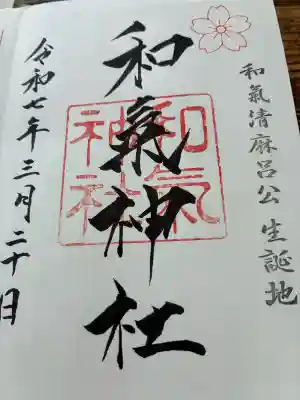 和氣清麻呂公 生誕地
和氣神社
和氣
神社
令和七年三月二十日